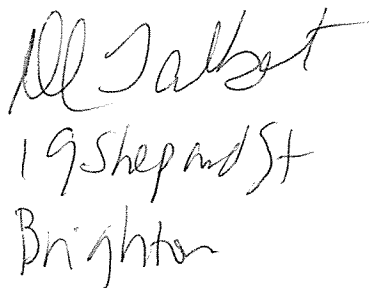 Talbot
19 Shepard St
Brighton